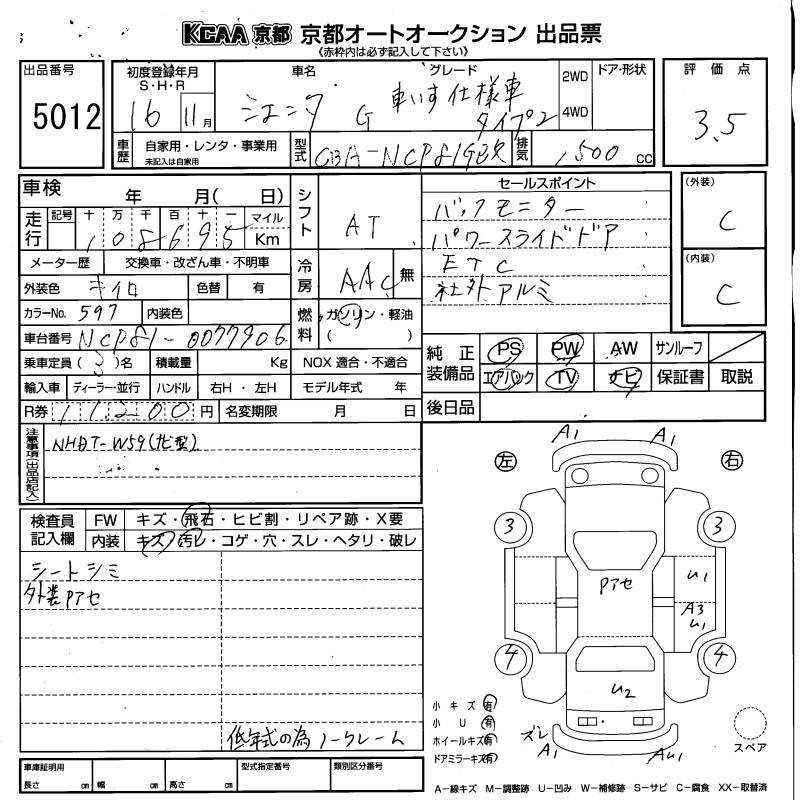 KCAA 京都 京都オートオークション 出品票
《赤枠内は必ず記入して下さい》
出品番号
5012
初度登録年月
S・H・R
16 11月
車名
シエンタ
グレード
G 車いす仕様車
タイプ2
2WD
4WD
ドア・形状
車歴
自家用・レンタ・事業用
未記入は自家用
型式
CBA-NCP81G改
排気
1,500 cc
評価点
3.5
車検 年 月( 日)
走行
記号 十 万 千 百 十 一 マイル
108695 Km
メーター歴 交換車・改ざん車・不明車
外装色 キイロ 色替 有
カラーNo. 597 内装色
車台番号 NCP81-0077906
乗車定員 ( 3 )名 積載量 Kg
輸入車 ディーラー・並行 ハンドル 右H・左H
R券 11,200 円 名変期限 月 日
シフト AT
冷房 AAC 無
燃料 ガソリン・軽油
( )
NOX 適合・不適合
モデル年式 年
セールスポイント
バックモニター
パワースライドドア
ETC
社外アルミ
(外装)
C
(内装)
C
純正装備品
PS PW AW サンルーフ
エアバック TV ナビ 保証書 取説
後日品
注意事項(出品店記入)
NHDT-W59(ナビ型)
検査員記入欄
FW キズ・飛石・ヒビ割・リペア跡・X要
内装 キズ・汚レ・コゲ・穴・スレ・ヘタリ・破レ
シートシミ
外装Pアセ
低年式の為ノークレーム
車庫証明用
長さ cm 幅 cm 高さ cm
型式指定番号
類別区分番号
A1 A1
左 右
3 3
Pアセ
U1
A3
U1
4 4
U2
小キズ 有
小U 有
ホイールキズ 有
ドアミラーキズ 有
ズレ
A1 AU1
スペア
A−線キズ M−調整跡 U−凹み W−補修跡 S−サビ C−腐食 XX−取替済